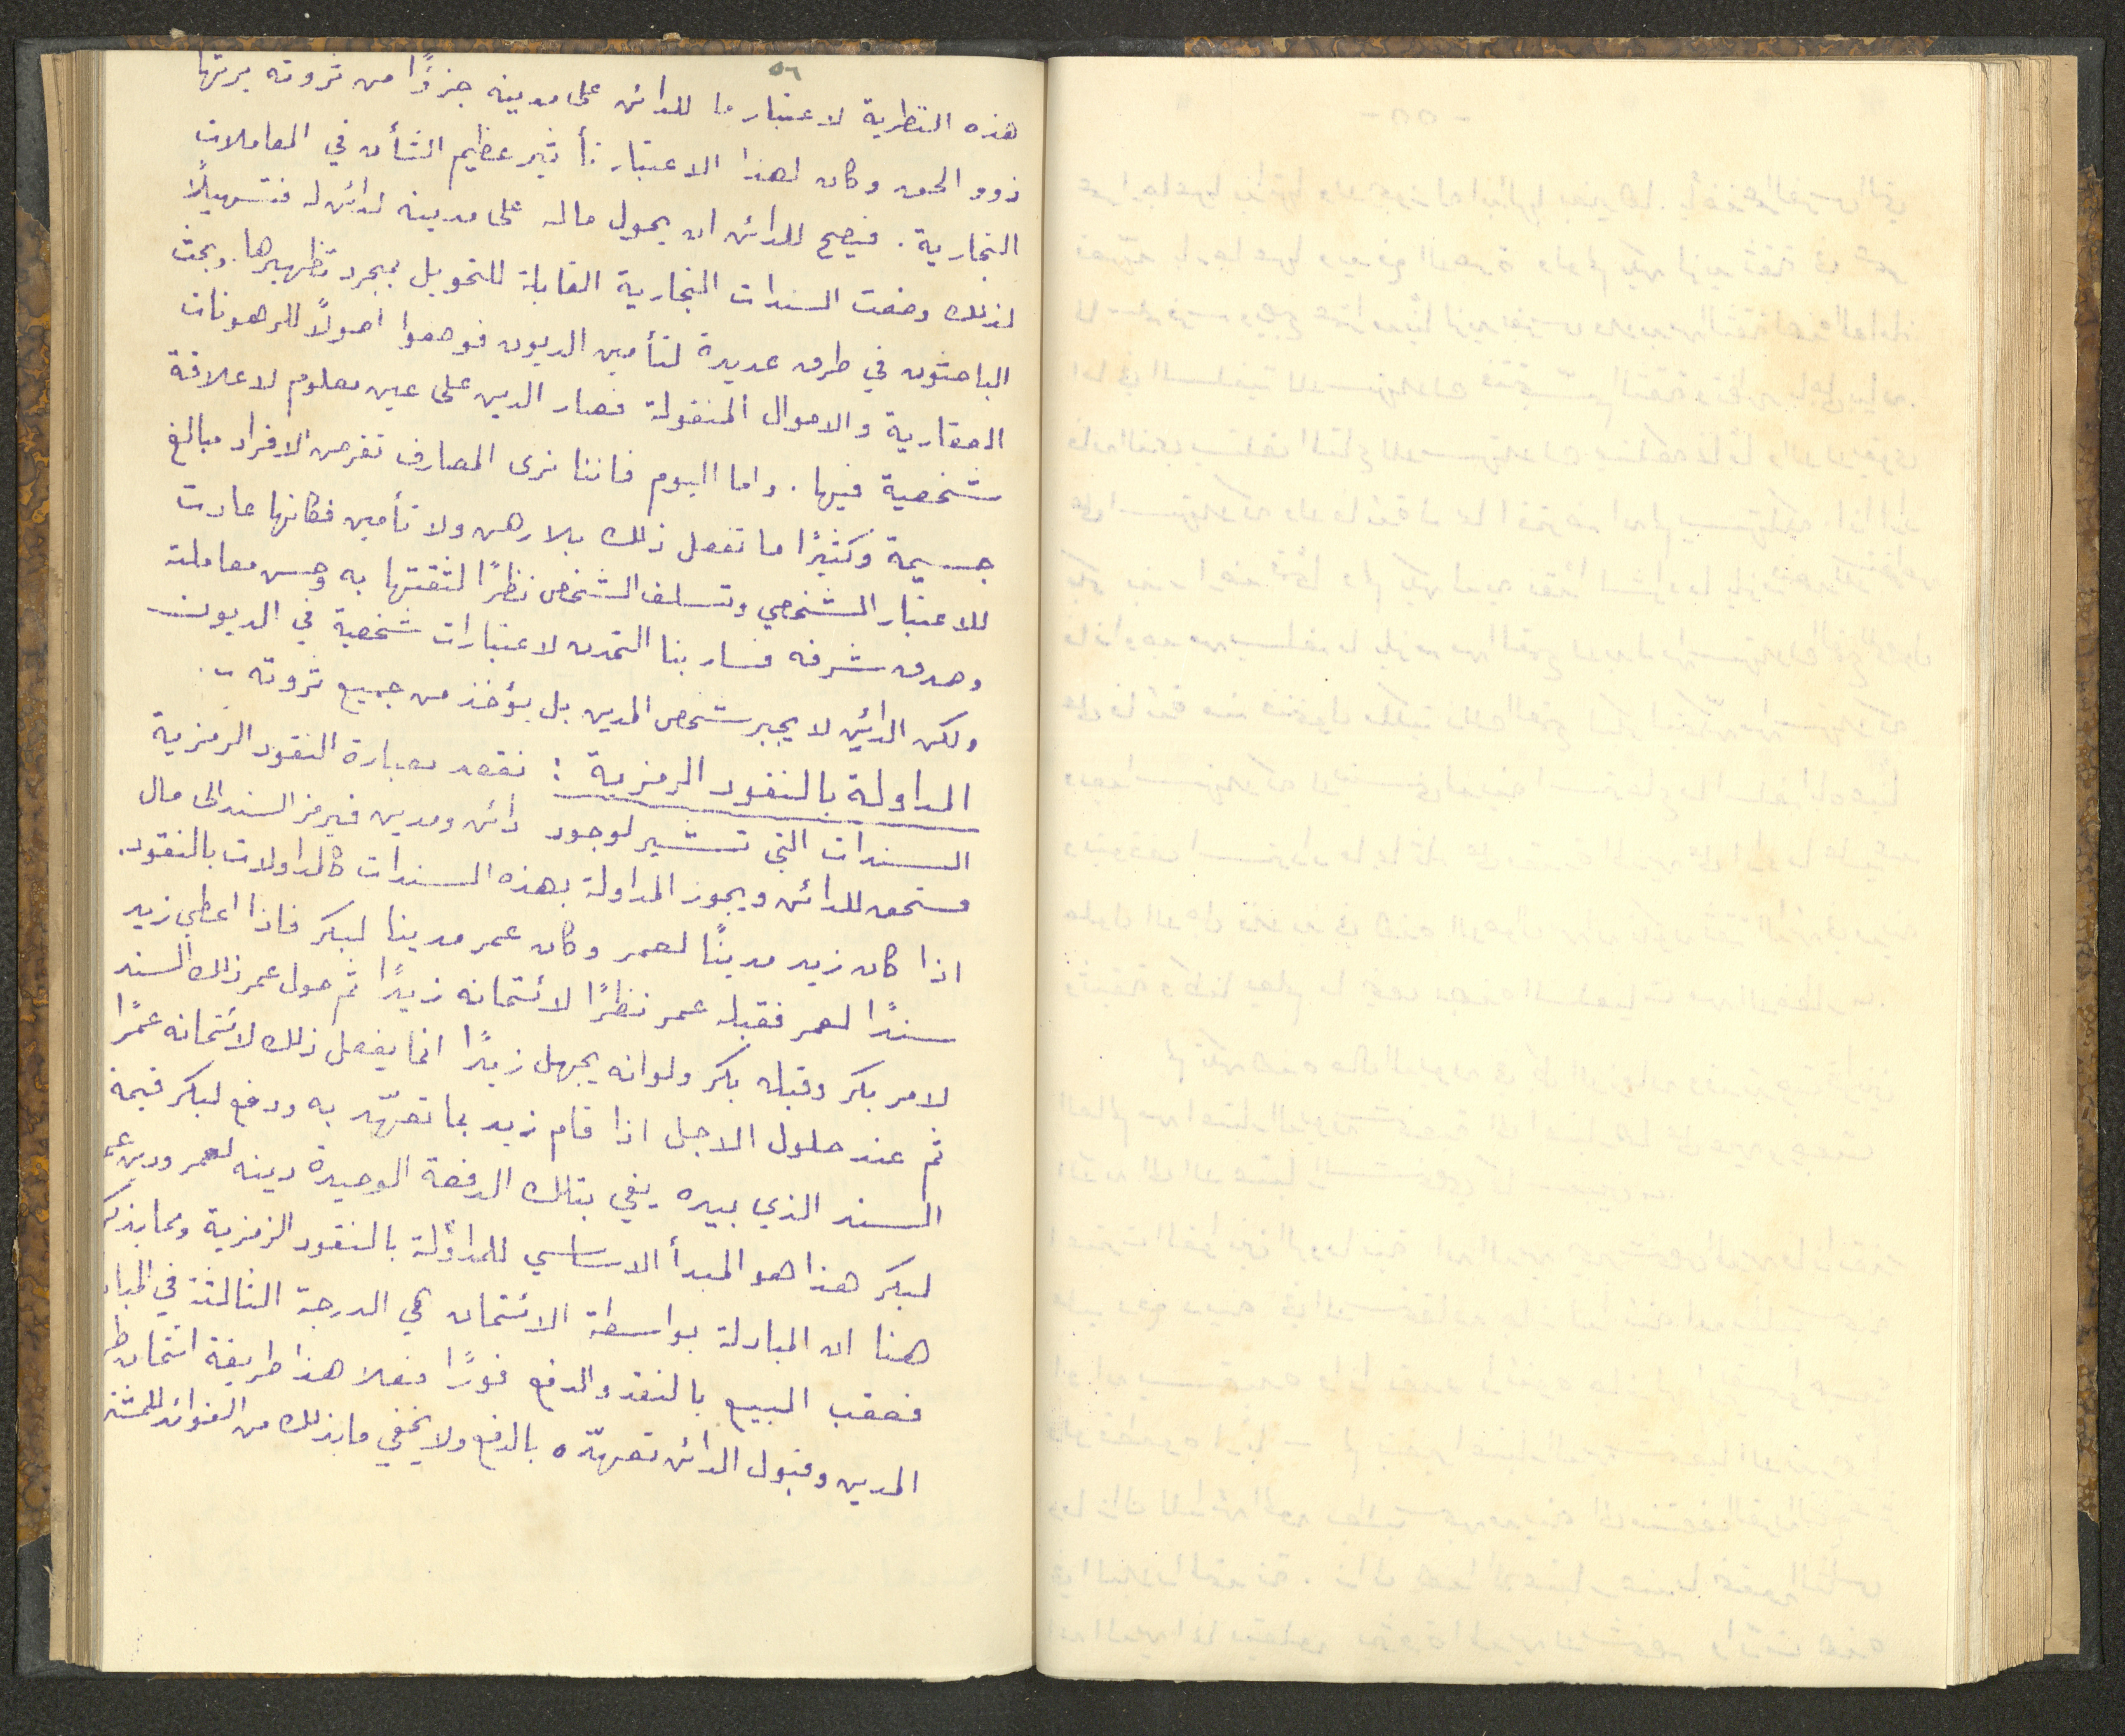 ٥٦
هذه النظرية لاعتبار ما للدائن على مدينه جزءًا من ثروته يرثها
ذوو الحق وكان لهذا الاعتبار تأثير عظيم الشأن في المعاملات
التجارية . فيصح للدائن ان يحول ماله على مدينه لدائن له فتسهيلًا
لذلك وضعت السندات التجارية القابلة للتحويل بمجرد تظهيرها. وبحث
الباحثون في طرق عديدة لتأمين الديون فوضعوا اصولًا للرهونات
العقارية والاموال المنقولة فصار الدين على عين معلوم لا علاقة
شخصية فيها . واما اليوم فاننا نرى المصارف تقرض الافراد مبالغ
جسيمة وكثيرًا ما تفعل ذلك بلا رهن ولا تأمين فكانها عادت
للاعتبار الشخصي وتسلف الشخص نظرًا لثقتها به وحسن معاملته
وصدق شرفه فسار بنا التمدن لاعتبارات شخصية في الديون
ولكن الدائن لا يجبر شخص المدين بل يؤخذ من جميع ثروته .
المداولة بالنقود الرمزية : نقصد بعبارة النقود الرمزية
السندات التي تشير لوجود دائن ومدين فيرمز السند الى مال
مستحق للدائن ويجوز المداولة بهذه السندات كالمداولات بالنقود.
اذا كان زيد مدينًا لعمر وكان عمر مدينا لبكر فاذا اعطى زيد
سندًا لعمر فقبله عمر نظرًا لائتمانه زيدًا ثم حول عمر ذلك السند
لامر بكر وقبله بكر ولو انه يجهل زيدًا انما يفعل ذلك لائتمانه عمرًا
ثم عند حلول الاجل اذا قام زيد بما تعهّد به ودفع لبكر قيمة
السند الذي بيده يفي بتلك الدفعة الوحيدة دينه لعمر ودين عمر
لبكر هذا هو المبدأ الاساسي للمداولة بالنقود الرمزية ومما يذكر
هنا ان المبادلة بواسطة الائتمان هي الدرجة الثالثة في
فعقب البيع بالنقد والدفع فورًا فعلا هذا طريقة ائتمان
المدين وقبول الدائن تعهّده بالدفع ولا يخفي ما بذلك من الفوائد